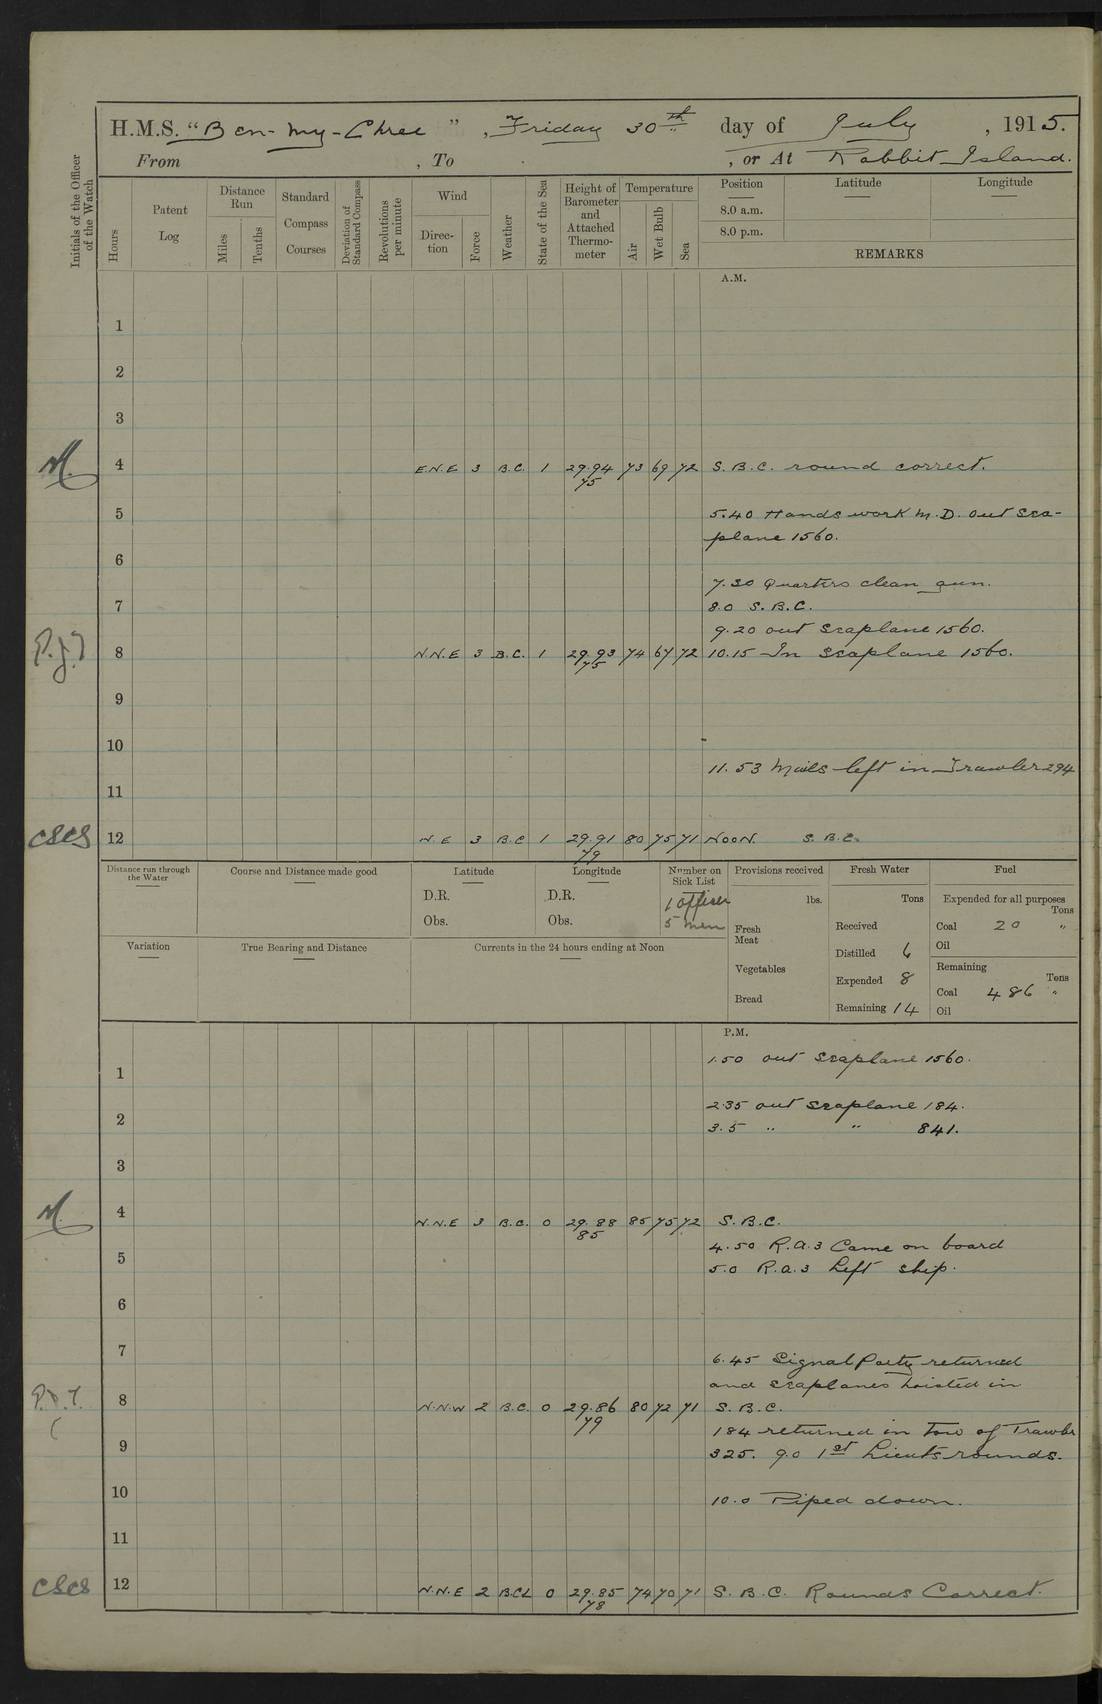 H.M.S. "Ben-my-Chree", Friday 30th day of July, 1915.
From , To , or At Rabbit Island.
Initials of the Officer of the Watch
Hours
Patent Log
Distance Run
Miles
Tenths
Standard Compass Courses
Deviation of Standard Compass
Revolutions per minute
Wind
Direction
Force
Weather
State of the Sea
Height of Barometer and Attached Thermometer
Temperature
Air
Wet Bulb
Sea
Position Latitude Longitude
8.0 a.m.
8.0 p.m.
REMARKS
A.M.
1
2
3
M. 4 E.N.E 3 B.C. 1 29.94 73 69 72 S.B.C. round correct.
75
5 5.40 Hands work M.D. out sea-
plane 1560.
6
7.30 Quarters clean gun.
7 8.0 S.B.C.
9.20 out seaplane 1560.
8 N.N.E 3 B.C. 1 29.93 74 67 72 10.15 In seaplane 1560.
75
9
10
11.53 Mails left in Trawler 294
11
CSCS 12 N.E 3 B.C 1 29.91 80 75 71 NOON. S.B.C.
79
Distance run through the Water
Course and Distance made good
Latitude
D.R.
Obs.
Longitude
D.R.
Obs.
Number on Sick List
1 officer
5 men
Provisions received
lbs.
Fresh Meat
Vegetables
Bread
Fresh Water
Tons
Received
Distilled 6
Expended 8
Remaining 14
Fuel
Expended for all purposes
Tons
Coal 20 "
Oil
Remaining
Tons
Coal 486 "
Oil
Variation
True Bearing and Distance
Currents in the 24 hours ending at Noon
P.M.
1.50 out seaplane 1560.
1
2.35 out seaplane 184.
2 3.5 " " 841.
3
M. 4 N.N.E 3 B.C. 0 29.88 85 75 72 S.B.C.
85
4.50 R.A.3 Came on board
5 5.0 R.A.3 Left ship.
6
7 6.45 Signal Party returned
and seaplanes hoisted in
8 N.N.W 2 B.C. 0 29.86 80 72 71 S.B.C.
79
184 returned in tow of Trawler
9 325. 9.0 1st Lieuts rounds.
10 10.0 Piped down.
11
CSCS 12 N.N.E 2 B.CL 0 29.85 74 70 71 S.B.C. Rounds Correct.
78